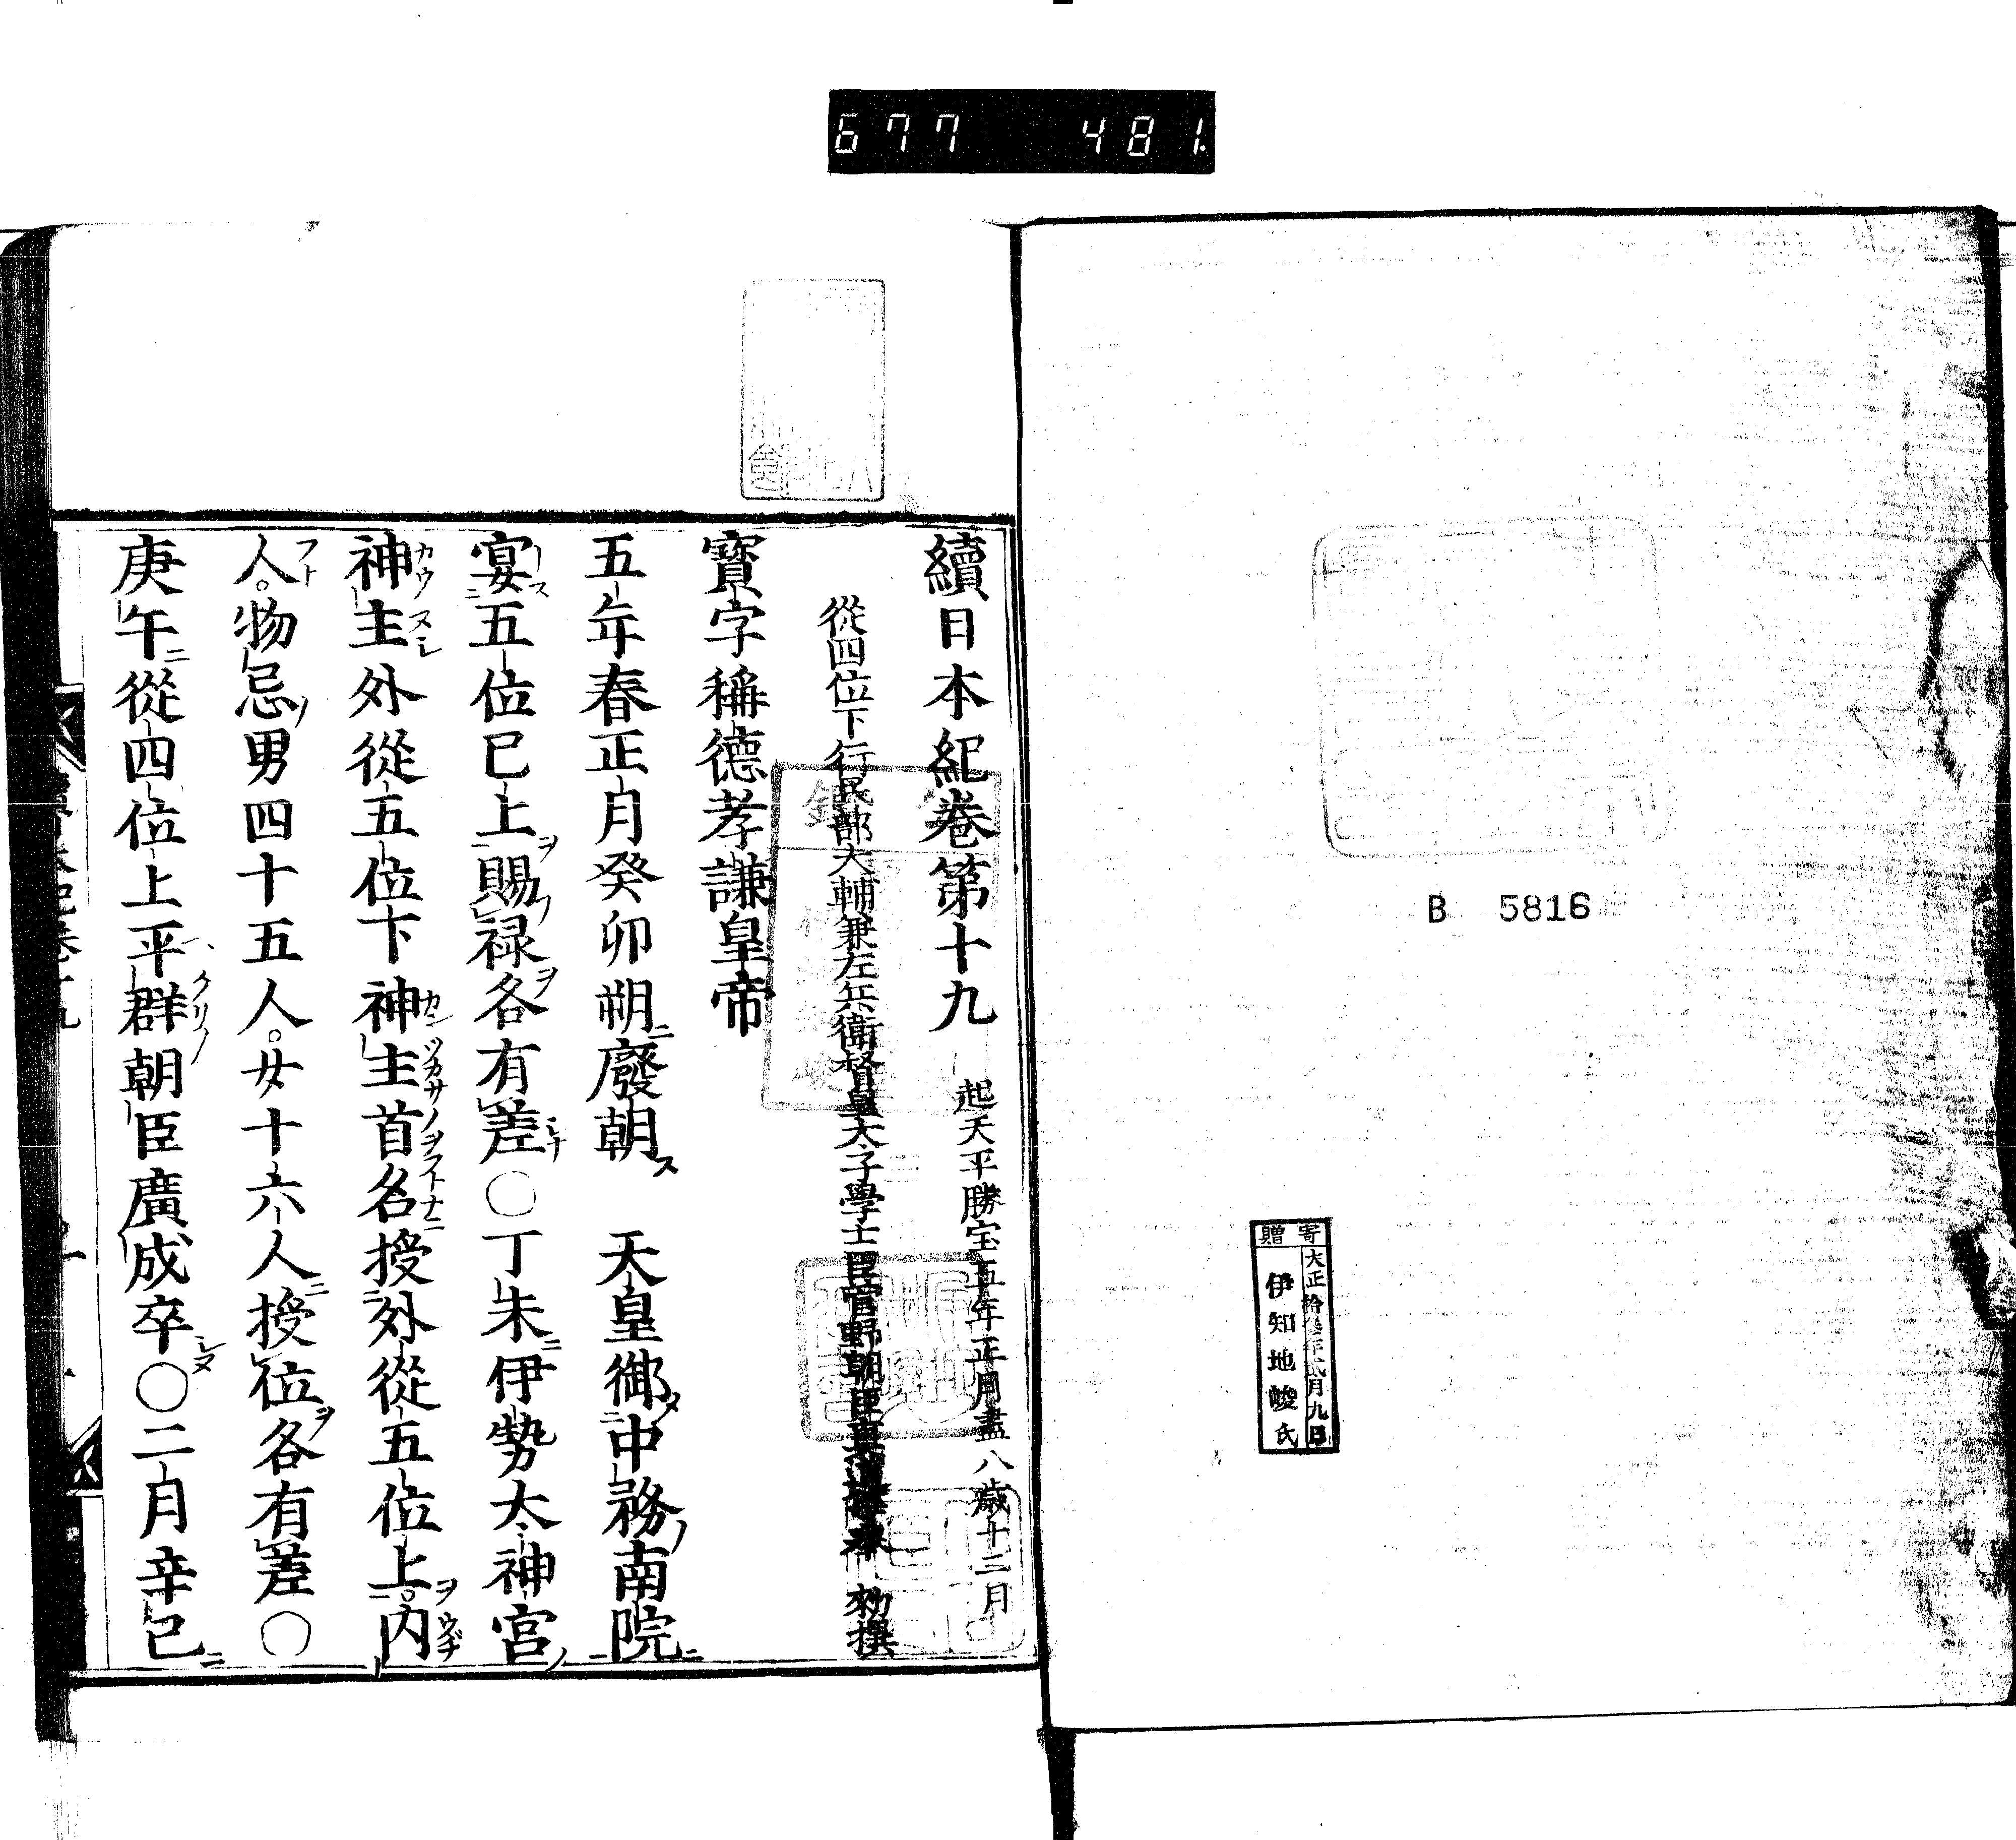 677 481.
B 5816
寄贈
大正拾参年弐月九日
伊知地峻氏
續日本紀巻第十九 起天平勝宝五年正月盡八歳十二月
從四位下行民部大輔兼左兵衛督皇太子學士臣菅野朝臣真道等奉 勅撰
寶字稱德孝謙皇帝
五年春正月癸卯朔廢朝 天皇御中務南院
宴五位已上賜禄各有差○丁未伊勢大神宮
神主外從五位下神主首名授外從五位上。内
人。物忌男四十五人。女十六人授位各有差○
庚午從四位上平群朝臣廣成卒○二月辛巳